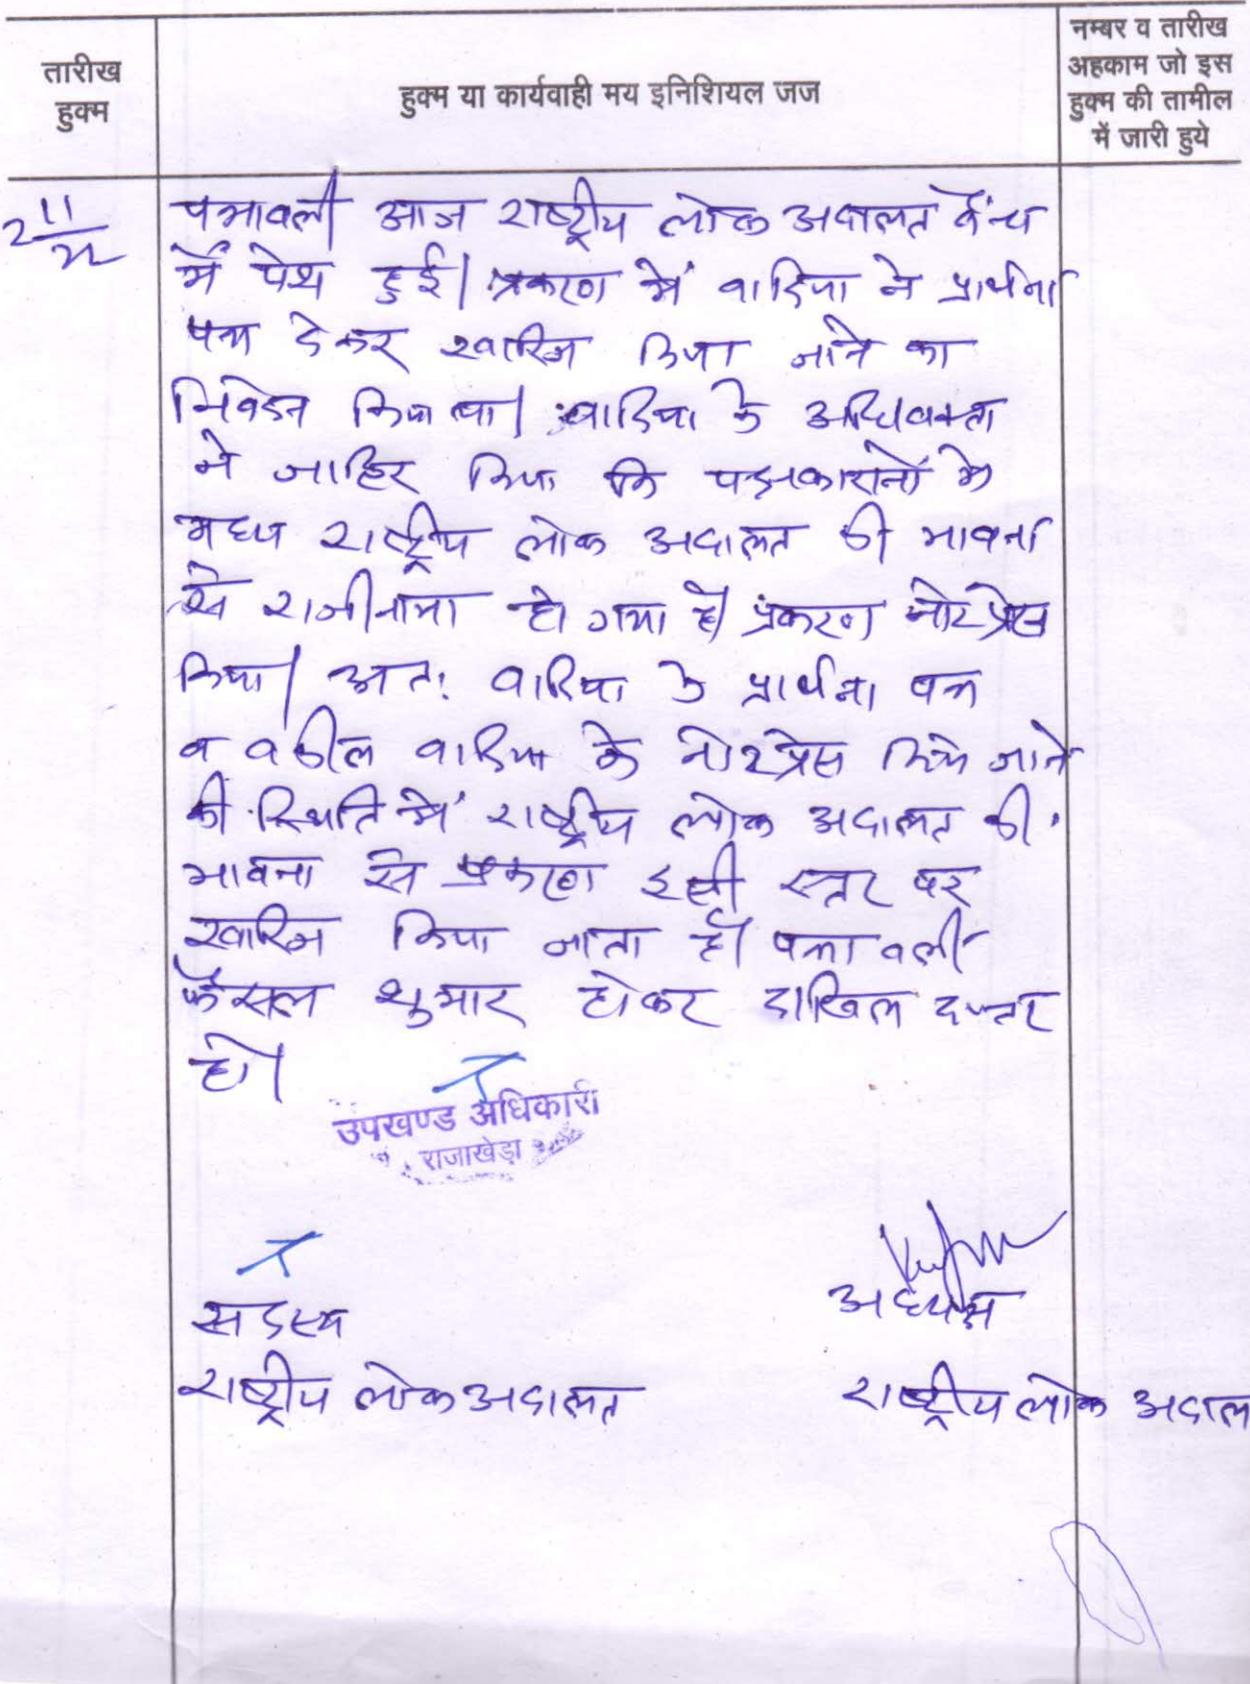 तारीख
हुक्म
हुक्म या कार्यवाही मय इनिशियल जज
नम्बर व तारीख
अहकाम जो इस
हुक्म की तामील
में जारी हुये
पत्रावली आज राष्ट्रीय लोक अदालत बैंच
में पेश हुई। प्रकरण में वादिया ने प्रार्थना
पत्र देकर खारिज किया जाने का
निवेदन किया था। वादिया के अधिवक्ता
ने जाहिर किया कि पक्षकारानों के
मध्य राष्ट्रीय लोक अदालत की भावना
से राजीनामा हो गया है। प्रकरण नोट प्रेस
किया। अतः वादिया के प्रार्थना पत्र
व वकील वादिया के नोट प्रेस किये जाने
की स्थिति में राष्ट्रीय लोक अदालत की
भावना से प्रकरण इसी स्तर पर
खारिज किया जाता है। पत्रावली
फैसल शुमार होकर दाखिल दफ्तर
हो।
उपखण्ड अधिकारी
राजाखेड़ा
सदस्य
अध्यक्ष
राष्ट्रीय लोक अदालत
राष्ट्रीय लोक अदाल